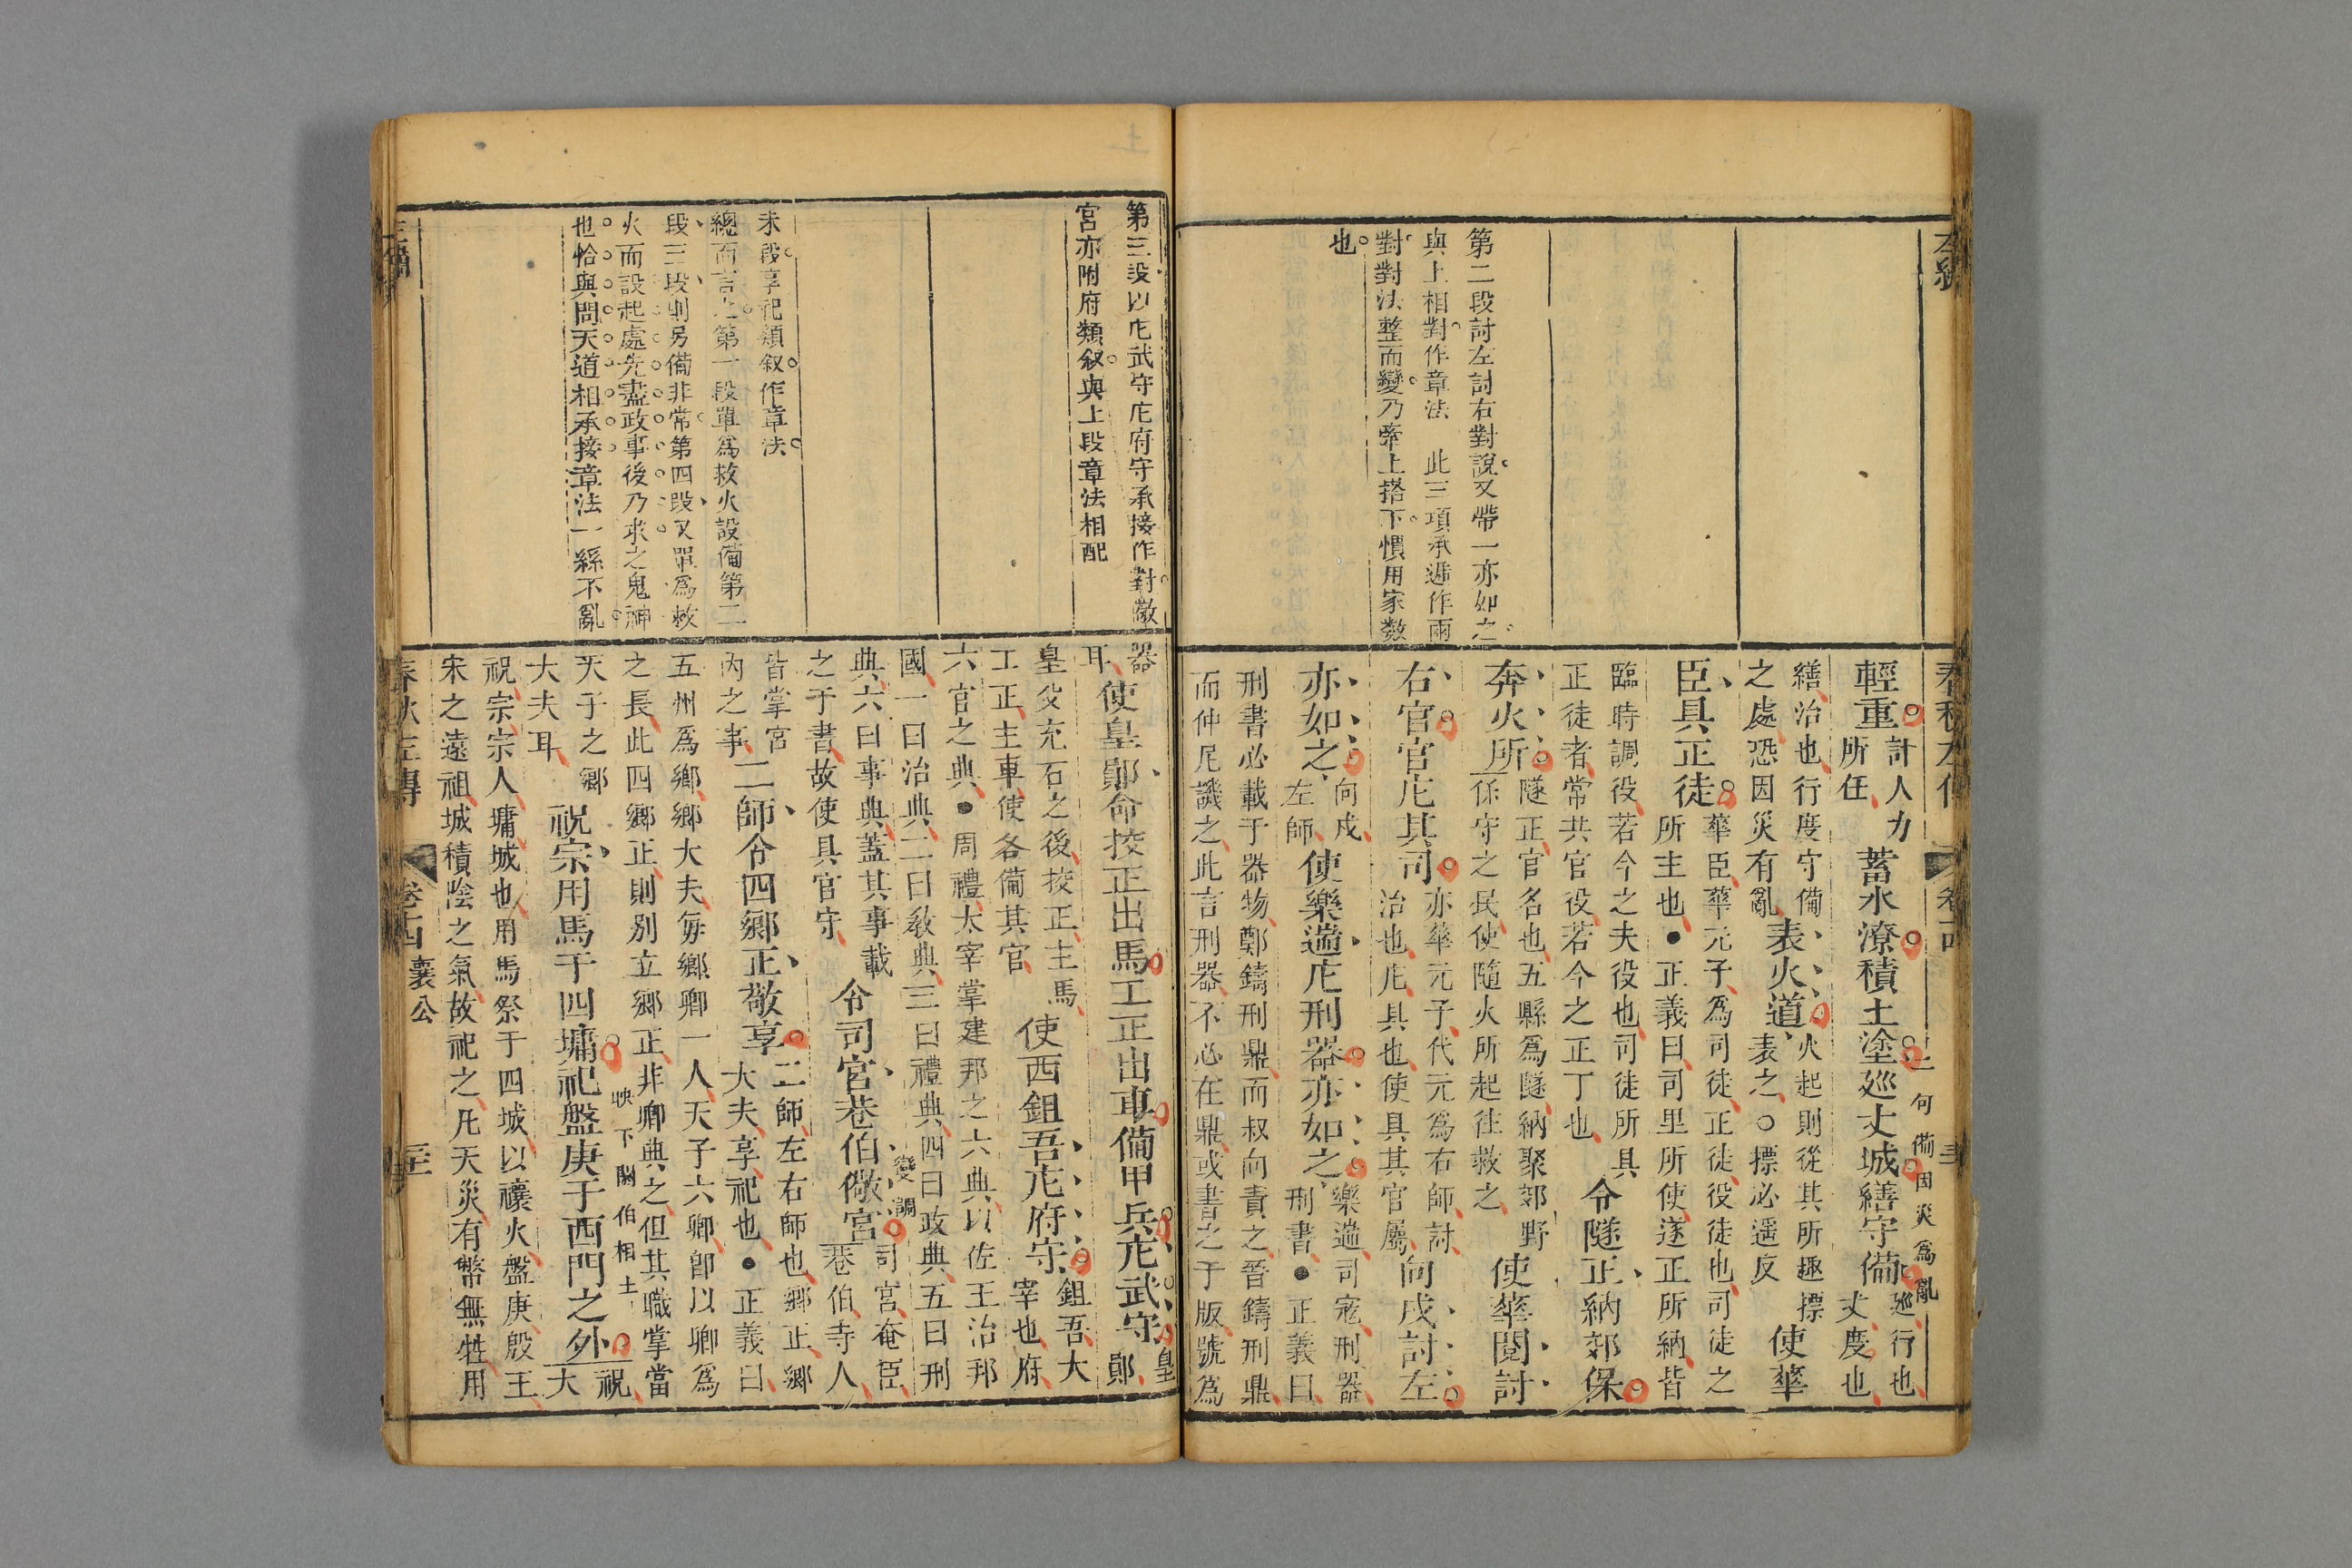 第二段討左討右對說又帶一亦如之
與上相對作章法 此三項承遞作兩
對對法整而變乃牽上搭下慣用家數
也
輕重計人力所任蓄水潦積土塗巡丈城繕守備巡行也丈度也
一句備因災爲亂
繕治也行度守備之處恐因災有亂表火道火起則從其所趣摽表之○摽必遥反使華
臣具正徒華臣華元子爲司徒正徒役徒也司徒之所主也●正義曰司里所使遂正所納皆
臨時調役若今之夫役也司徒所具正徒者常共官役若今之正丁也令隧正納郊保
奔火所隧正官名也五縣爲隧納聚郊野保守之民使隨火所起往救之使華閱討
右官官庀其司亦華元子代元爲右師討治也庀具也使具其官屬向戌討左
亦如之向戌左師使樂遄庀刑器亦如之樂遄司寇刑器刑書●正義曰
刑書必載于器物鄭鑄刑鼎而叔向責之晉鑄刑鼎
而仲尼譏之此言刑器不必在鼎或書之于版號爲
第三段以庀武守庀府守承接作對儆
宮亦附府類叙與上段章法相配
末段享祀類叙作章法
總而言之第一段單爲救火設備第二
段三段則另備非常第四段又單爲救
火而設起處先盡政事後乃求之鬼神
也恰與問天道相承接章法一絲不亂
器耳使皇鄖命挍正出馬工正出車備甲兵庀武守皇鄖
皇父充石之後挍正主馬工正主車使各備其官使西鉏吾庀府守鉏吾大宰也府
六官之典●周禮太宰掌建邦之六典以佐王治邦
國一曰治典二曰敎典三曰禮典四曰政典五曰刑
典六曰事典蓋其事載之于書故使具官守令司宮巷伯儆宮司宮奄臣巷伯寺人
變調
皆掌宮內之事二師令四鄉正敬享二師左右師也鄉正鄉大夫享祀也●正義曰
五州爲鄉鄉大夫每鄉卿一人天子六卿卽以卿爲
之長此四鄉正則別立鄉正非卿典之但其職掌當
天子之鄉大夫耳祝宗用馬于四墉祀盤庚于西門之外祝大
映下閼伯相土
祝宗宗人墉城也用馬祭于四城以禳火盤庚殷王
宋之遠祖城積陰之氣故祀之凡天災有幣無牲用
春秋左傳 卷十四 襄公